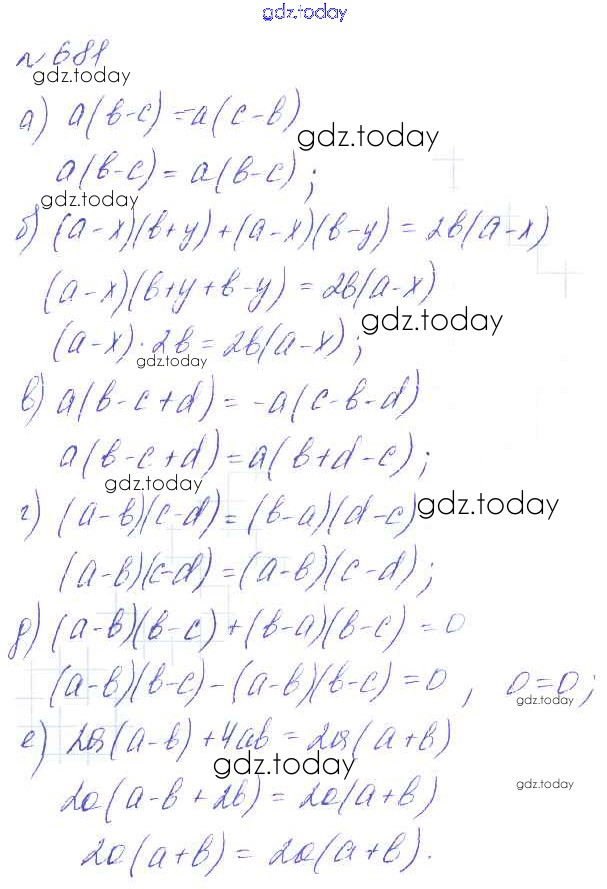 gdz.today
№ 681
gdz.today
а) a(b-c) = a(c-b)
gdz.today
a(b-c) = a(b-c);
gdz.today
б) (a-x)(b+y)+(a-x)(b-y) = 2b(a-x)
(a-x)(b+y+b-y) = 2b(a-x)
gdz.today
(a-x)·2b = 2b(a-x);
gdz.today
в) a(b-c+d) = -a(c-b-d)
a(b-c+d) = a(b+d-c);
gdz.today
г) (a-b)(c-d) = (b-a)(d-c)
gdz.today
(a-b)(c-d) = (a-b)(c-d);
д) (a-b)(b-c)+(b-a)(b-c) = 0
(a-b)(b-c)-(a-b)(b-c) = 0, 0=0;
gdz.today
е) 2a(a-b)+4ab = 2a(a+b)
gdz.today
2a(a-b+2b) = 2a(a+b)
gdz.today
2a(a+b) = 2a(a+b).